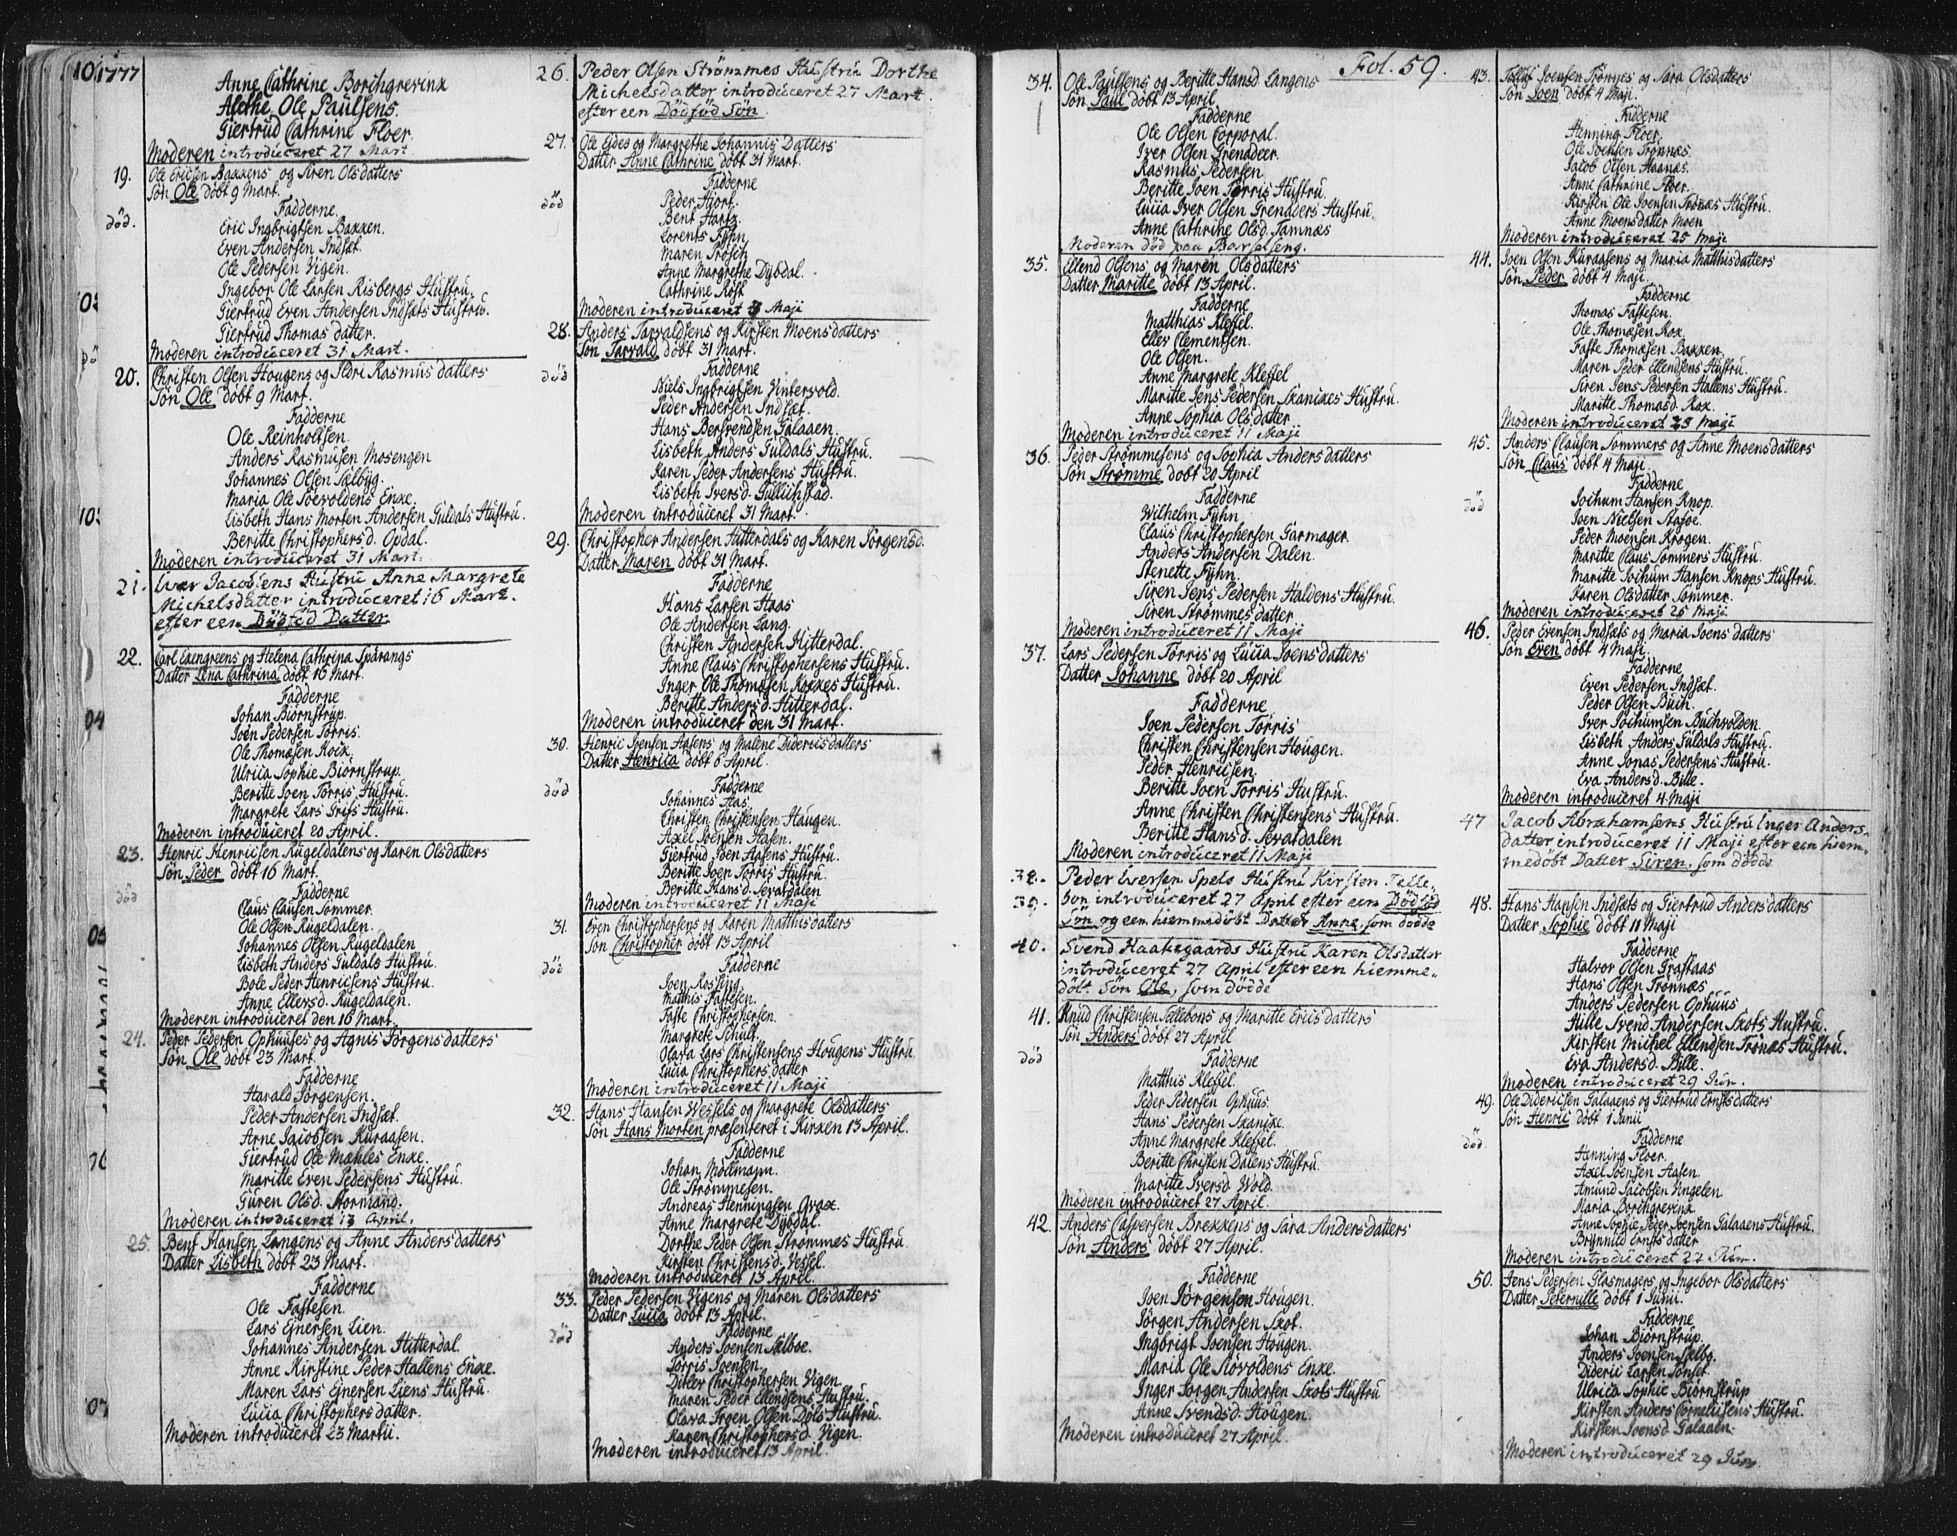 1777
Anne Cathrine Borchgrevink
Alethe Ole Paulsens.
Giertrud Cathrine Floer.
Moderen introduceret 27 Mart
19. Ole Ericsen Bakkens og Siren Olsdatters
Søn Ole døbt 9 Mart.
Fadderne
død.
Eric Ingbrigtsen Bakken.
Even Andersen Indset.
Ole Pedersen Vigen.
Ingebor Ole Larsen Risbergs Hustru.
Giertrud Even Andersen Indsets Hustru.
Giertrud Thomas datter.
Moderen introduceret 31 Mart.
20. Christen Olsen Hougens og Sldri Rasmus datters
Søn Ole døbt 9 Mart.
Fadderne
Ole Reinholtsen.
Anders Rasmusen Mosengen
Johannes Olsen Selbyg.
Maria Ole Soevoldens Enke.
Lisbeth Hans Morten Andersen Guldals Hustru.
Beritte Christophersd. Opdal.
Moderen introduceret 31 Mart.
21. Iver Jacobsens Hustru Anne Margrete
Michelsdatter introduceret 16 Mart.
efter een Dødfød Datter.
22. Carl Edengreens og Helena Cathrina Sparangs
Datter Lena Cathrina døbt 16 Mart.
Fadderne
Johan Biørnstrup.
Joen Pedersen Torris.
Ole Thomæsen Koix.
Ulrica Sophie Biørnstrup.
Beritte Joen Torris Hustru.
Margrete Lars Griis Hustru.
Moderen introduceret 20 April.
23. Henric Henricsen Rugeldalens og Karen Olsdatters
Søn Peder døbt 16 Mart.
Fadderne
død
Claus Clausen Sommer.
Ole Olsen Rugeldalen.
Johannes Olsen Rugeldalen
Lisbeth Anders Guldals Hustru.
Bole Peder Henricsens Hustru.
Anne Ellersd. Rugeldalen.
Moderen introduceret den 16 Mart.
24. Peder Pedersen Ophuuses og Agnis Jørgensdatters
Søn Ole døbt 23 Mart.
Fadderne
Harald Jørgensen.
Peder Andersen Indset.
Arne Jacobsen Kuraasen.
Giertrud Ole Mæhles Enke.
Maritte Even Pedersens Hustru.
Guren Olsd. Normand.
Moderen introduceret 13 April.
25. Bent Hansen Langens og Anne Andersdatters
Datter Lisbeth døbt 23 Mart.
Fadderne
Ole Fastesen.
Lars Ejnersen Lien.
Johannes Andersen Hitterdal.
Anne Kirstine Peder Hallens Enke.
Maren Lars Ejnersen Liens Hustru.
Lucia Christophersdatter.
Moderen introduceret 23 Martii.
26. Peder Olsen Strømmes Hustru Dorthe
Michelsdatter introduceret 27 Mart.
efter een Dødfød Søn.
27. Ole Eides og Margrethe Johannis Datters
Datter Anne Cathrine døbt 31 Mart.
Fadderne
død
Peder Hjort.
Bent Hartz.
Lorents Fyhn.
Maren Trosen
Anne Margrethe Dybdal.
Cathrine Rost
Moderen introduceret 8 Maji
28. Anders Tarvaldsens og Kirsten Moensdatters
Søn Tarvald døbt 31 Mart.
Fadderne
død
Niels Ingbrigtsen Vintervold.
Peder Andersen Indset.
Hans Bersvendsen Galaaen.
Lisbeth Anders Guldals Hustru.
Karen Peder Andersens Hustru.
Lisbeth Iversd. Gullichstad.
Moderen introduceret 31 Mart.
29. Christopher Andersen Hitterdals og Karen Jorgensd.
Datter Maren døbt 31 Mart.
Fadderne
Hans Larsen Haas
Ole Andersen Lang.
Christen Andersen Hitterdal.
Anne Claus Christophersens Hustru.
Inger Ole Thomæsen Kokkes Hustru.
Beritte Andersd. Hitterdal.
Moderen introduceret den 31 Mart.
30. Henric Joensen Aasens og Malene Didericsdatters
Datter Henrica døbt 6 April.
Fadderne
død
Johannes Aas.
Christen Christensen Haugen.
Axel Joensen Aasen.
Giertrud Joen Aasens Hustru.
Beritte Joen Torris Hustru.
Beritte Hansd. Sevatdalen
Moderen introduceret 11 Maji
31. Oren Christophersens og Karen Matthisdatters
Søn Christopher døbt 13 April
Fadderne
død
Joen Rossing.
Matthis Fastesen.
Faste Christophersen.
Margrete Schult.
Olava Lars Christensens Hougens Hustru
Lucia Christophersdatter
Moderen introduceret 11 Maji
32. Hans Hansen Wessels og Margrete Olsdatters
Søn Hans Morten præsenteret i Kirken 13 April.
Fadderne
Johan Mollmann.
Ole Strømmesen.
Andreas Henningsen Qvax.
Anne Margrete Dybdal.
Dorthe Peder Olsen Strømmes Hustru.
Kirsten Christensd. Vessel.
Moderen introduceret 13 April.
33. Peder Pedersen Vigens og Maren Olsdatters
Datter Lucia døbt 13 April.
Fadderne
død
Anders Joensen Selboe.
Torris Joensen.
Ditlev Christophersen Vigen
Maren Peder Ellendsens Hustru.
Olava Trøen Olsen Døls Hustru.
Karen Christophersd. Vigen.
Moderen introduceret 13 April.
Fol. 59.
34. Ole Paulsens og Beritte Hansd. Langens
Søn Paul døbt 13 April.
Fadderne
Ole Olsen Corporal.
Iver Olsen Grenadeer.
Rasmus Pedersen
Beritte Joen Torris Hustru.
Lucia Iver Olsen Grenaders Hustru.
Anne Cathrine Olsd. Tamnæs
Moderen død paa Barselseng.
35. Ellend Olsens og Maren Olsdatters
Datter Maritte døbt 13 April.
Fadderne
Matthias Klessel.
Eller Clementsen.
Ole Olsen.
Anne Margrete Klessel
Maritte Jens Pedersen Skanckes Hustru.
Anne Sophia Olsdatter
Moderen introduceret 11 Maji
36. Peder Strømmesens og Sophia Andersdatters
Søn Strømme døbt 20 April
Fadderne
Wilhelm Fyhn.
Claus Christophersen Garmager
Anders Andersen Dalen.
Stenette Fyhn.
Siren Jens Pedersen Haldens Hustru.
Siren Strømmesdatter
Moderen introduceret 11 Maji
37. Lars Pedersen Torris og Lucia Joensdatters
Datter Johanne døbt 20 April
Fadderne
Joen Pedersen Torris
Christen Christensen Hougen.
Peder Henricsen.
Beritte Joen Torris Hustru.
Anne Christen Christensens Hustru.
Beritte Hansd. Sevatdalen
Moderen introduceret 11 Maji
38. Peder Iversen Spels Hustru Kirsten Telle-
39. bon introduceret 27 April efter een Dødfød
Søn og een hiemmedøbt Datter Anne, som døde
40. Svend Haakegaards Hustru Karen Olsdatter
introduceret 27 April efter een hiemme-
døbt Søn Ole, som døde
41. Knud Christensen Tellebons og Maritte Ericsdatters
Søn Anders døbt 27 April
død
Fadderne
Matthis Klessel.
Peder Pedersen Ophuus.
Hans Pedersen Skancke.
Anne Margrete Klessel.
Beritte Christen Dalens Hustru.
Maritte Iversd. Wold.
Moderen introduceret 27 April.
42. Anders Caspersen Brekkens og Sara Andersdatters
Søn Anders døbt 27 April.
Fadderne
Joen Jörgensen Hougen.
Jörgen Andersen Skot.
Ingbrigt Joensen Hougen.
Maria Ole Støvoldens Enke.
Inger Jorgen Andersen Skots Hustru
Anne Svendsd. Hougen
Moderen introduceret 27 April.
43. Tollef Joensen Trønnes og Sara Olsdatters
Søn Joen døbt 4 Maji.
Fadderne
Henning Floer.
Ole Joensen Trønnæs.
Jacob Olsen Haanæs.
Anne Cathrine Floer.
Kirsten Ole Joensen Trönæs Hustru.
Anne Moensdatter Moen
Moderen introduceret 25 Maji
44. Joen Olsen Kuraasens og Maria Matthisdatters
Søn Peder døbt 4 Maji.
Fadderne
Thomas Fastesen.
Ole Thomæsen Kox.
Faste Thomæsen Bakken
Maren Peder Ellendsens Hustru.
Siren Jens Pedersen Hallens Hustru.
Maritte Thomasd. Kox.
Moderen introduceret 25 Maji
45. Anders Clausen Sommers og Anne Moensdatters
Søn Claus døbt 4 Maji.
Fadderne
død
Jochum Hansen Knop.
Joen Nielsen Stafoe.
Peder Moensen Krogen.
Maritte Claus Sommers Hustru.
Maritte Jochum Hansen Knops Hustru.
Karen Olsdatter Sommer.
Moderen introduceret 25 Maji
46. Peder Evensen Indsets og Maria Joens datters
Søn Even døbt 4 Maji.
Fadderne
Even Pedersen Indset.
Peder Olsen Buch.
Iver Jochumsen Buchvolden.
Lisbeth Anders Guldals Hustru.
Anne Jonas Pedersens Hustru.
Eva Andersd. Bille.
Moderen introduceret 4 Maji
47 Jacob Abrahamsens Hustru Inger Anders-
datter introduceret 11 Maji efter een hiem-
medøbt Datter Siren, som døde
48. Hans Hansen Indsets og Giertrud Andersdatters
Datter Sophie døbt 11 Maji
Fadderne
Halvor Olsen Graftaas
Hans Olsen Trønnæs
Anders Pedersen Ophuus
Hille Svend Andersen Skots Hustru.
Kirsten Michel Ellendsen Trönæs Hustru.
Eva Andersd. Bille.
Moderen introduceret 29 Jun.
49 Ole Didericsen Galaaens og Giertrud Ernstsdatters
Søn Henric døbt 1 Junii
Fadderne
død.
Henning Floer.
Axel Joensen Aasen.
Amund Jacobsen Engelen
Maria Borchgrevink
Anne Sophie Peder Joensen Galaaens Hustru.
Brynnild Ernstsdatter
Moderen introduceret 22 Jun.
50. Jens Pedersen Glasmagers og Ingebor Olsdatters
Datter Peternille døbt 1 Junii.
Fadderne
Johan Biørnstrup.
Anders Joensen Selbo.
Dideric Larsen Sonset.
Ulrica Sophie Biørnstrup
Kirsten Anders Corneliusens Hustru.
Kirsten Joensd. Galaaen.
Moderen introduceret 29 Jun